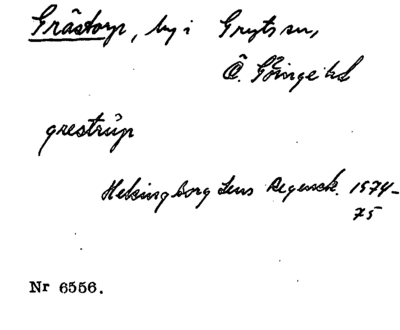 Grästorp, by i Gryts sn,
Ö. Göinge hd
grestrup
Helsingborg Lens Regensk. 1574-
75
Nr 6556.